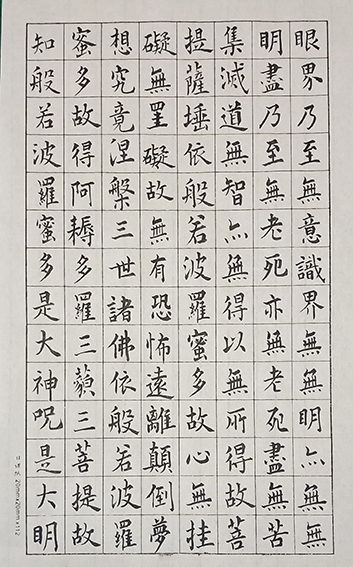 眼界乃至無意識界無無明亦無無
明盡乃至無老死亦無老死盡無苦
集滅道無智亦無得以無所得故菩
提薩埵依般若波羅蜜多故心無挂
礙無罣礙故無有恐怖遠離顛倒夢
想究竟涅槃三世諸佛依般若波羅
蜜多故得阿耨多羅三藐三菩提故
知般若波羅蜜多是大神呪是大明
20mm×20mm×112